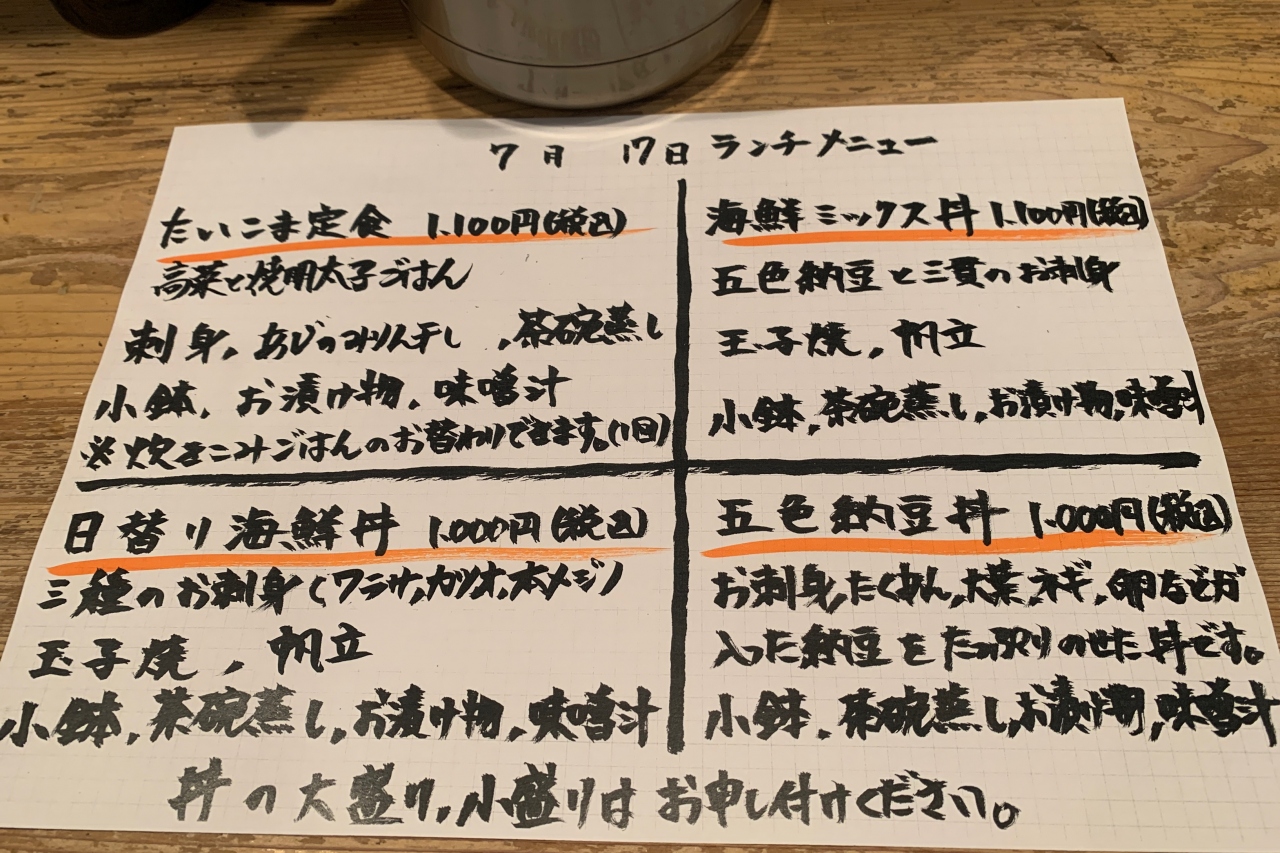 7月 17日 ランチメニュー
たいこま定食 1.100円(税込)
高菜と焼明太子ごはん
刺身、あじのみりん干し、茶碗蒸し
小鉢、お漬け物、味噌汁
※炊きこみごはんのお替わりできます。(1回)
海鮮ミックス丼 1.100円(税込)
五色納豆と三貫のお刺身
玉子焼、帆立
小鉢、茶碗蒸し、お漬け物、味噌汁
日替り海鮮丼 1.000円(税込)
三種のお刺身(ワラサ、カツオ、本メジ)
玉子焼、帆立
小鉢、茶碗蒸し、お漬け物、味噌汁
五色納豆丼 1.000円(税込)
お刺身、たくあん、大葉、ネギ、卵などが
入った納豆をたっぷりのせた丼です。
小鉢、茶碗蒸し、お漬け物、味噌汁
丼の大盛り、小盛りはお申し付けください。